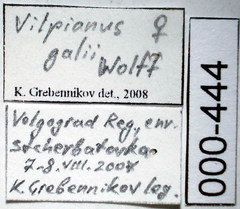 Vilpianus ♀
galii
Wolff
K. Grebennikov det., 2008
Volgograd Reg., env.
Stcherbatovka
7-8.VIII.2007
K. Grebennikov leg.
000-444